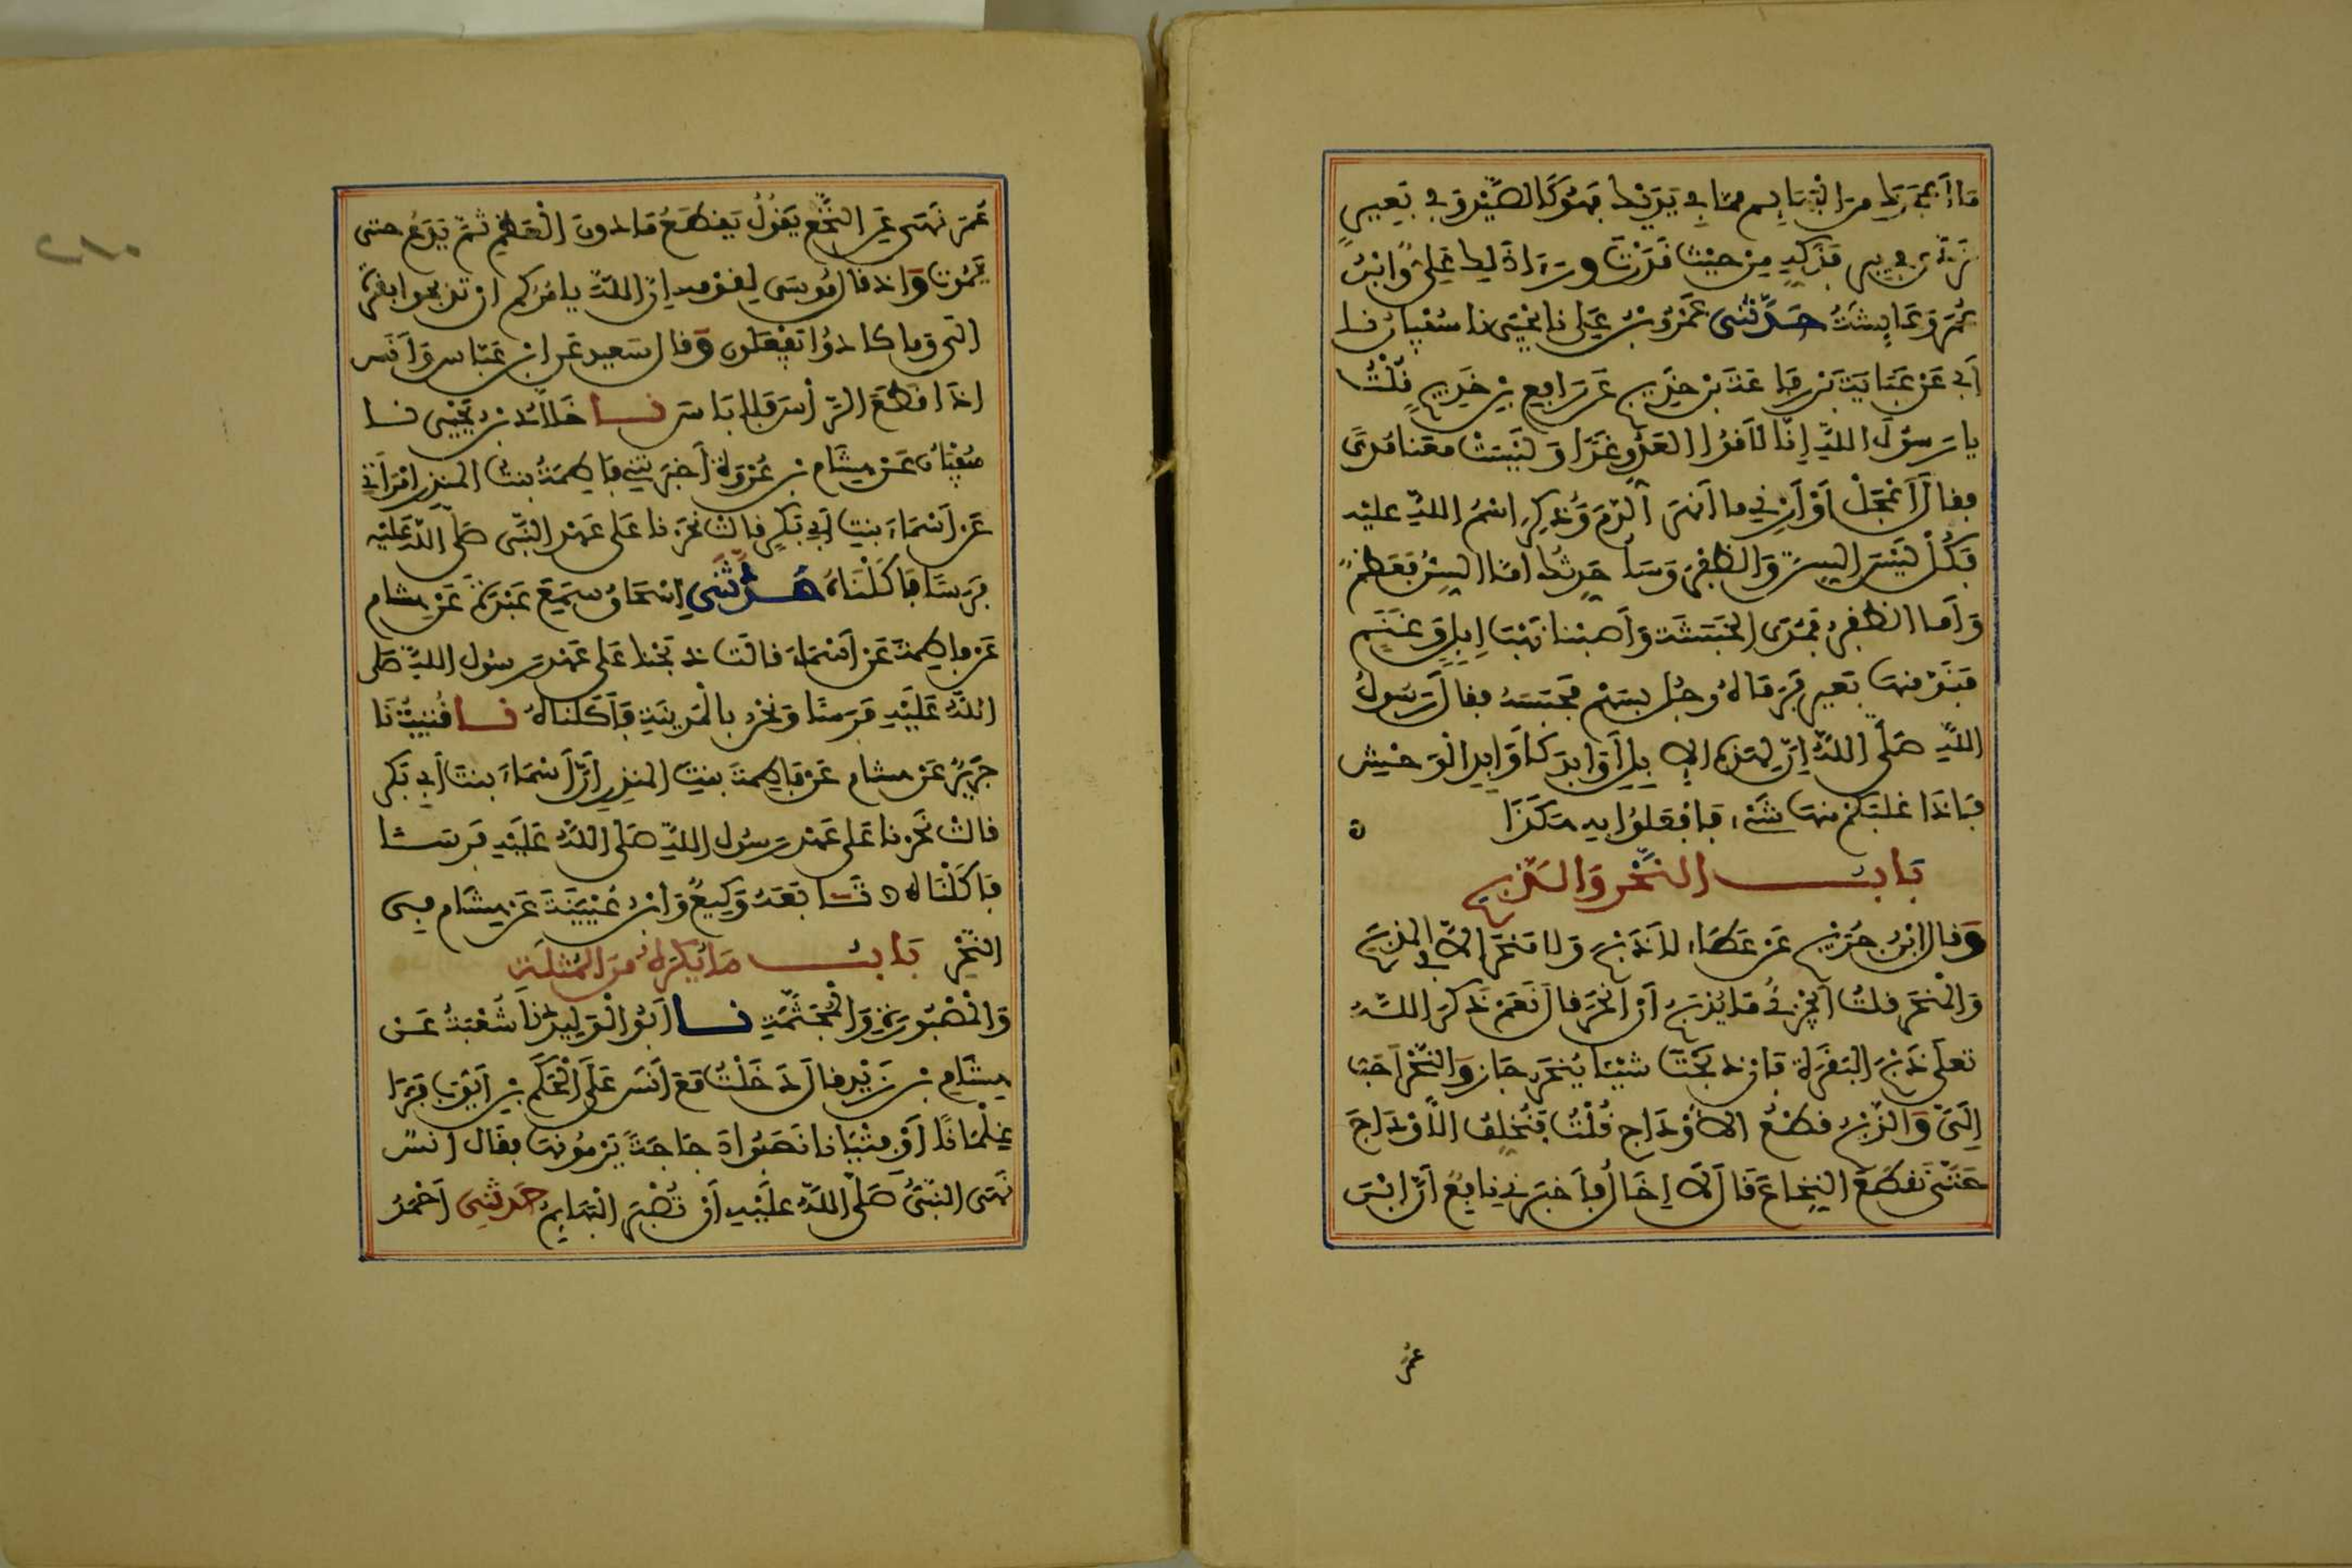 مَا أَعْجَزَكَ مِنَ الْبَهَائِمِ مِمَّا فِي يَدَيْكَ فَهُوَ كَالصَّيْدِ وَفِي بَعِيرٍ
تَرَدَّى فِي بِيرٍ فَذَكِّهِ مِنْ حَيْثُ قَدَرْتَ وَرَأَى ذَلِكَ عَلِيٌّ وَابْنُ
عُمَرَ وَعَائِشَةُ حَدَّثَنِي عَمْرُو بْنُ عَلِي نا يَحْيَى نا سُفْيَانُ نا
أَبِي عَنْ عَبَايَةَ بْنِ رِفَاعَةَ بْنِ خَدِيجٍ عَنْ رَافِعِ بْنِ خَدِيجٍ قُلْتُ
يا رَسُولَ اللَّهِ إِنَّا لَاقُوا الْعَدُوِّ غَدًا وَلَيْسَتْ مَعَنَا مُدًى
فقال أَعْجِلْ أَوْ أَرْنِي ما أَنْهَرَ الدَّمَ وَذُكِرَ اسْمُ اللَّهِ عليه
فَكُلْ لَيْسَ السِّنَّ وَالظُّفُرَ وَسَأُحَدِّثُكَ أمَّا السِّنُّ فَعَظْمٌ
وَأَما الظُّفُرُ فَمُدَى الْحَبَشَةِ وَأَصَبْنَا نَهْبَ إِبِلٍ وَغَنَمٍ
فَنَدَّ مِنْهَا بَعِيرٌ فَرَمَاهُ رَجُلٌ بِسَهْمٍ فَحَبَسَهُ فقال رَسُولُ
اللَّهِ صَلَّى اللَّهُ إِنَّ لِهَذِهِ الْإِبِلِ أَوَابِدَ كَأَوَابِدِ الْوَحْشِ
فَإِذَا غَلَبَكُمْ مِنْهَا شَيْءٌ فَافْعَلُوا بِهِ هَكَذَا ه
بَابُ النَّحْرِ وَالذَّبْحِ
وَقَالَ ابْنُ جُرَيْجٍ عَنْ عَطَاءٍ لَا ذَبْحَ وَلَا مَنْحَرَ إِلَّا فِي الْمَذْبَحِ
وَالْمَنْحَرِ قلتُ أَيَجْزِي مَا يُذْبَحُ أَنْ أَنْحَرَ قال نَعَمْ ذَكَرَ اللَّهُ
تعلى ذَبْحَ الْبَقَرَةِ فَإِنْ ذَبَحْتَ شَيْئًا يُنْحَرُ جَازَ وَالنَّحْرُ أَحَبُّ
إِلَيَّ وَالذَّبْحُ قَطْعُ الْأَوْدَاجِ قُلْتُ فَتُخَلَّفُ الْأَوْدَاجَ
حَتَّى تَقْطَعَ النِّخَاعَ قَالَ لَا إِخَالُ فَأَخْبَرَنِي نَافِعٌ أَنَّ ابْنَ
عُمَرَ
عُمَرَ نَهَى عَنِ النَّخْعِ يَقُولُ يَقْطَعُ مَا دُونَ الْعَظْمِ ثُمَّ يَدَعُ حتى
يَمُوتَ وَإِذْ قَالَ مُوسَى لِقَوْمِهِ إِنَّ اللَّهَ يَأْمُرُكُمْ أَنْ تَذْبَحُوا بَقَرَةً
إلَى وَمَا كَادُوا يَفْعَلُونَ وَقَالَ سَعِيدٌ عَنِ ابْنِ عَبَّاسٍ وَأَنَسٍ
إِذَا قَطَعَ الرَّأْسَ فَلَا بَاسَ نا خَلَّادُ بْنُ يَحْيَى نا
سُفْيَانُ عَنْ هِشَامِ بْنِ عُرْوَةَ أَخْبَرَتْنِي فَاطِمَةُ بِنْتُ الْمُنْذِرِ امْرَأَتِي
عَنْ أَسْمَاءَ بِنْتِ أَبِي بَكْرٍ قَالَتْ نَحَرْنَا عَلَى عَهْدِ النَّبِيِّ صَلَّى اللَّهُ عَلَيْهِ
فَرَسًا فَأَكَلْنَاهُ حَدَّثَنِي إِسْحَاقُ سَمِعَ عَبْدَةَ عَنْ هِشَامٍ
عَنْ فَاطِمَةَ عَنْ أَسْمَاءَ قَالَتْ ذَبَحْنَا عَلَى عَهْدِ رَسُولِ اللَّهِ صَلَّى
اللَّهُ عَلَيْهِ فَرَسًا وَنَحْنُ بِالْمَدِينَةِ فَأَكَلْنَاهُ نا قُتَيْبَةُ نَا
جَرِيرٌ عَنْ هِشَامٍ عَنْ فَاطِمَةَ بِنْتِ الْمُنْذِرِ أَنَّ أَسْمَاءَ بِنْتَ أَبِي بَكْرٍ
قَالَتْ نَحَرْنَا عَلَى عَهْدِ رَسُولِ اللَّهِ صَلَّى اللَّهُ عَلَيْهِ فَرَسًا
فَأَكَلْنَاهُ ه تَابَعَهُ وَكِيعٌ وَابْنُ عُيَيْنَةَ عَنْ هِشَامٍ فِي
النَّحْرِ بَابُ مَا يُكْرَهُ مِنَ الْمُثْلَةِ
وَالْمَصْبُورَةِ وَالْمُجَثَّمَةِ نا أَبُو الْوَلِيدِ نَا شُعْبَةُ عَنْ
هِشَامِ بْنِ زَيْدٍ قَالَ دَخَلْتُ مَعَ أَنَسٍ عَلَى الْحَكَمِ بْنِ أَيُّوبَ فَرَأَى
غِلْمَانًا أَوْ فِتْيَانًا نَصَبُوا دَجَاجَةً يَرْمُونَهَا فَقَالَ أَنَسٌ
نَهَى النَّبِيُّ صَلَّى اللَّهُ عَلَيْهِ أَنْ تُصْبَرَ الْبَهَائِمُ حَدَّثَنِي أَحْمَدُ